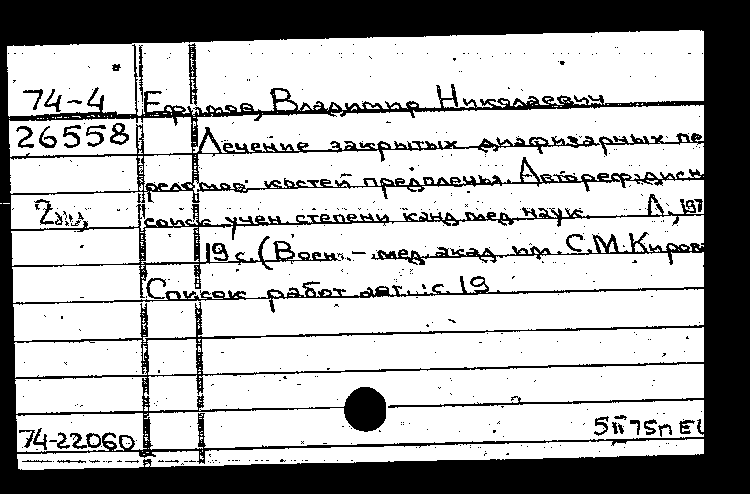 74-4 Ефимов, Владимир Николаевич
26558 Лечение закрытых диафизарных пе
реломов костей предплечья. Автореф. дисн
2 соиск учен. степени канд мед наук. Л., 197
19 с. (Воен.-мед. акад. им. С.М. Киров
Список работ авт.: с. 19.
74-22060 5 II 75п